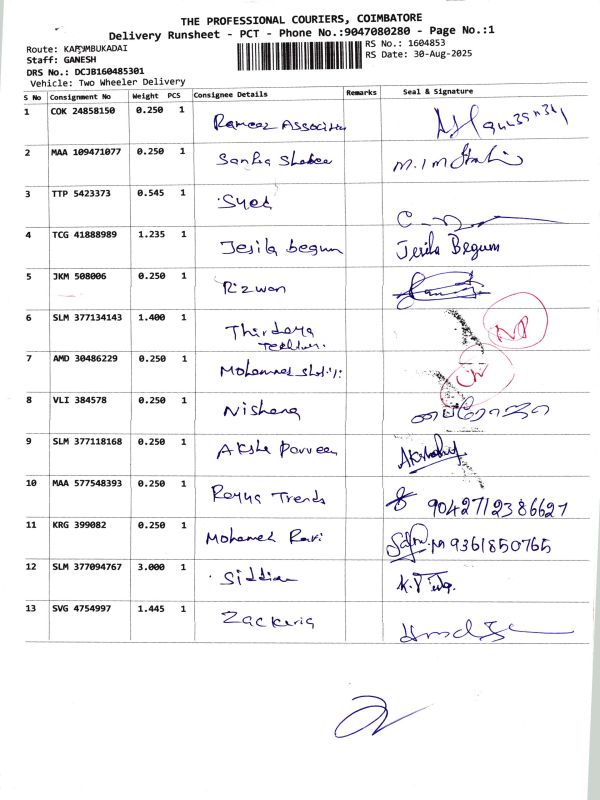 THE PROFESSIONAL COURIERS, COIMBATORE
Delivery Runsheet - PCT - Phone No.:9047080280 - Page No.:1
Route: KARUMBUKADAI
RS No.: 1604853
Staff: GANESH
RS Date: 30-Aug-2025
DRS No.: DCJB160485301
Vehicle: Two Wheeler Delivery
S No Consignment No Weight PCS Consignee Details Remarks Seal & Signature
1 COK 24858150 0.250 1 Rameez
2 MAA 109471077 0.250 1
3 TTP 5423373 0.545 1 Syed
4 TCG 41888989 1.235 1 Jesila begum Jesila Begum
5 JKM 508006 0.250 1 Rizwan
6 SLM 377134143 1.400 1
7 AMD 30486229 0.250 1
8 VLI 384578 0.250 1 Nishana
9 SLM 377118168 0.250 1 Parveen
10 MAA 577548393 0.250 1 Trends 90427112386627
11 KRG 399082 0.250 1 Mohamed Ravi 9361850765
12 SLM 377094767 3.000 1
13 SVG 4754997 1.445 1 Zackeria